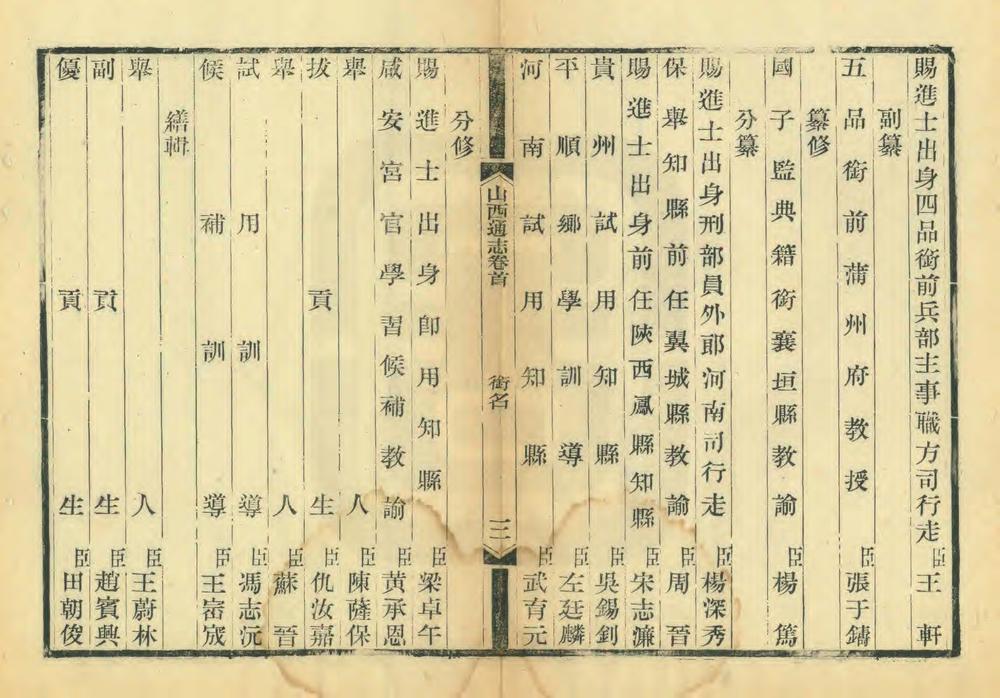 賜進士出身四品銜前兵部主事職方司行走臣王軒
副纂
五品銜前蒲州府教授臣張于鑄
纂修
國子監典籍銜襄垣縣教諭臣楊篤
分纂
賜進士出身刑部員外郎河南司行走臣楊深秀
保舉知縣前任翼城縣教諭臣周晉
賜進士出身前任陝西鳳縣知縣臣宋志濂
貴州試用知縣臣吳錫釗
平順鄉學訓導臣左廷麟
河南試用知縣臣武育元
山西通志卷首 銜名 三
分修
賜進士出身即用知縣臣梁卓午
咸安宮官學習候補教諭臣黃承恩
舉人臣陳薩保
拔貢生臣仇汝嘉
舉人臣蘇晉
試用訓導臣馮志沅
候補訓導臣王宻宬
繕輯
舉人臣王蔚林
副貢生臣趙賓興
優貢生臣田朝俊